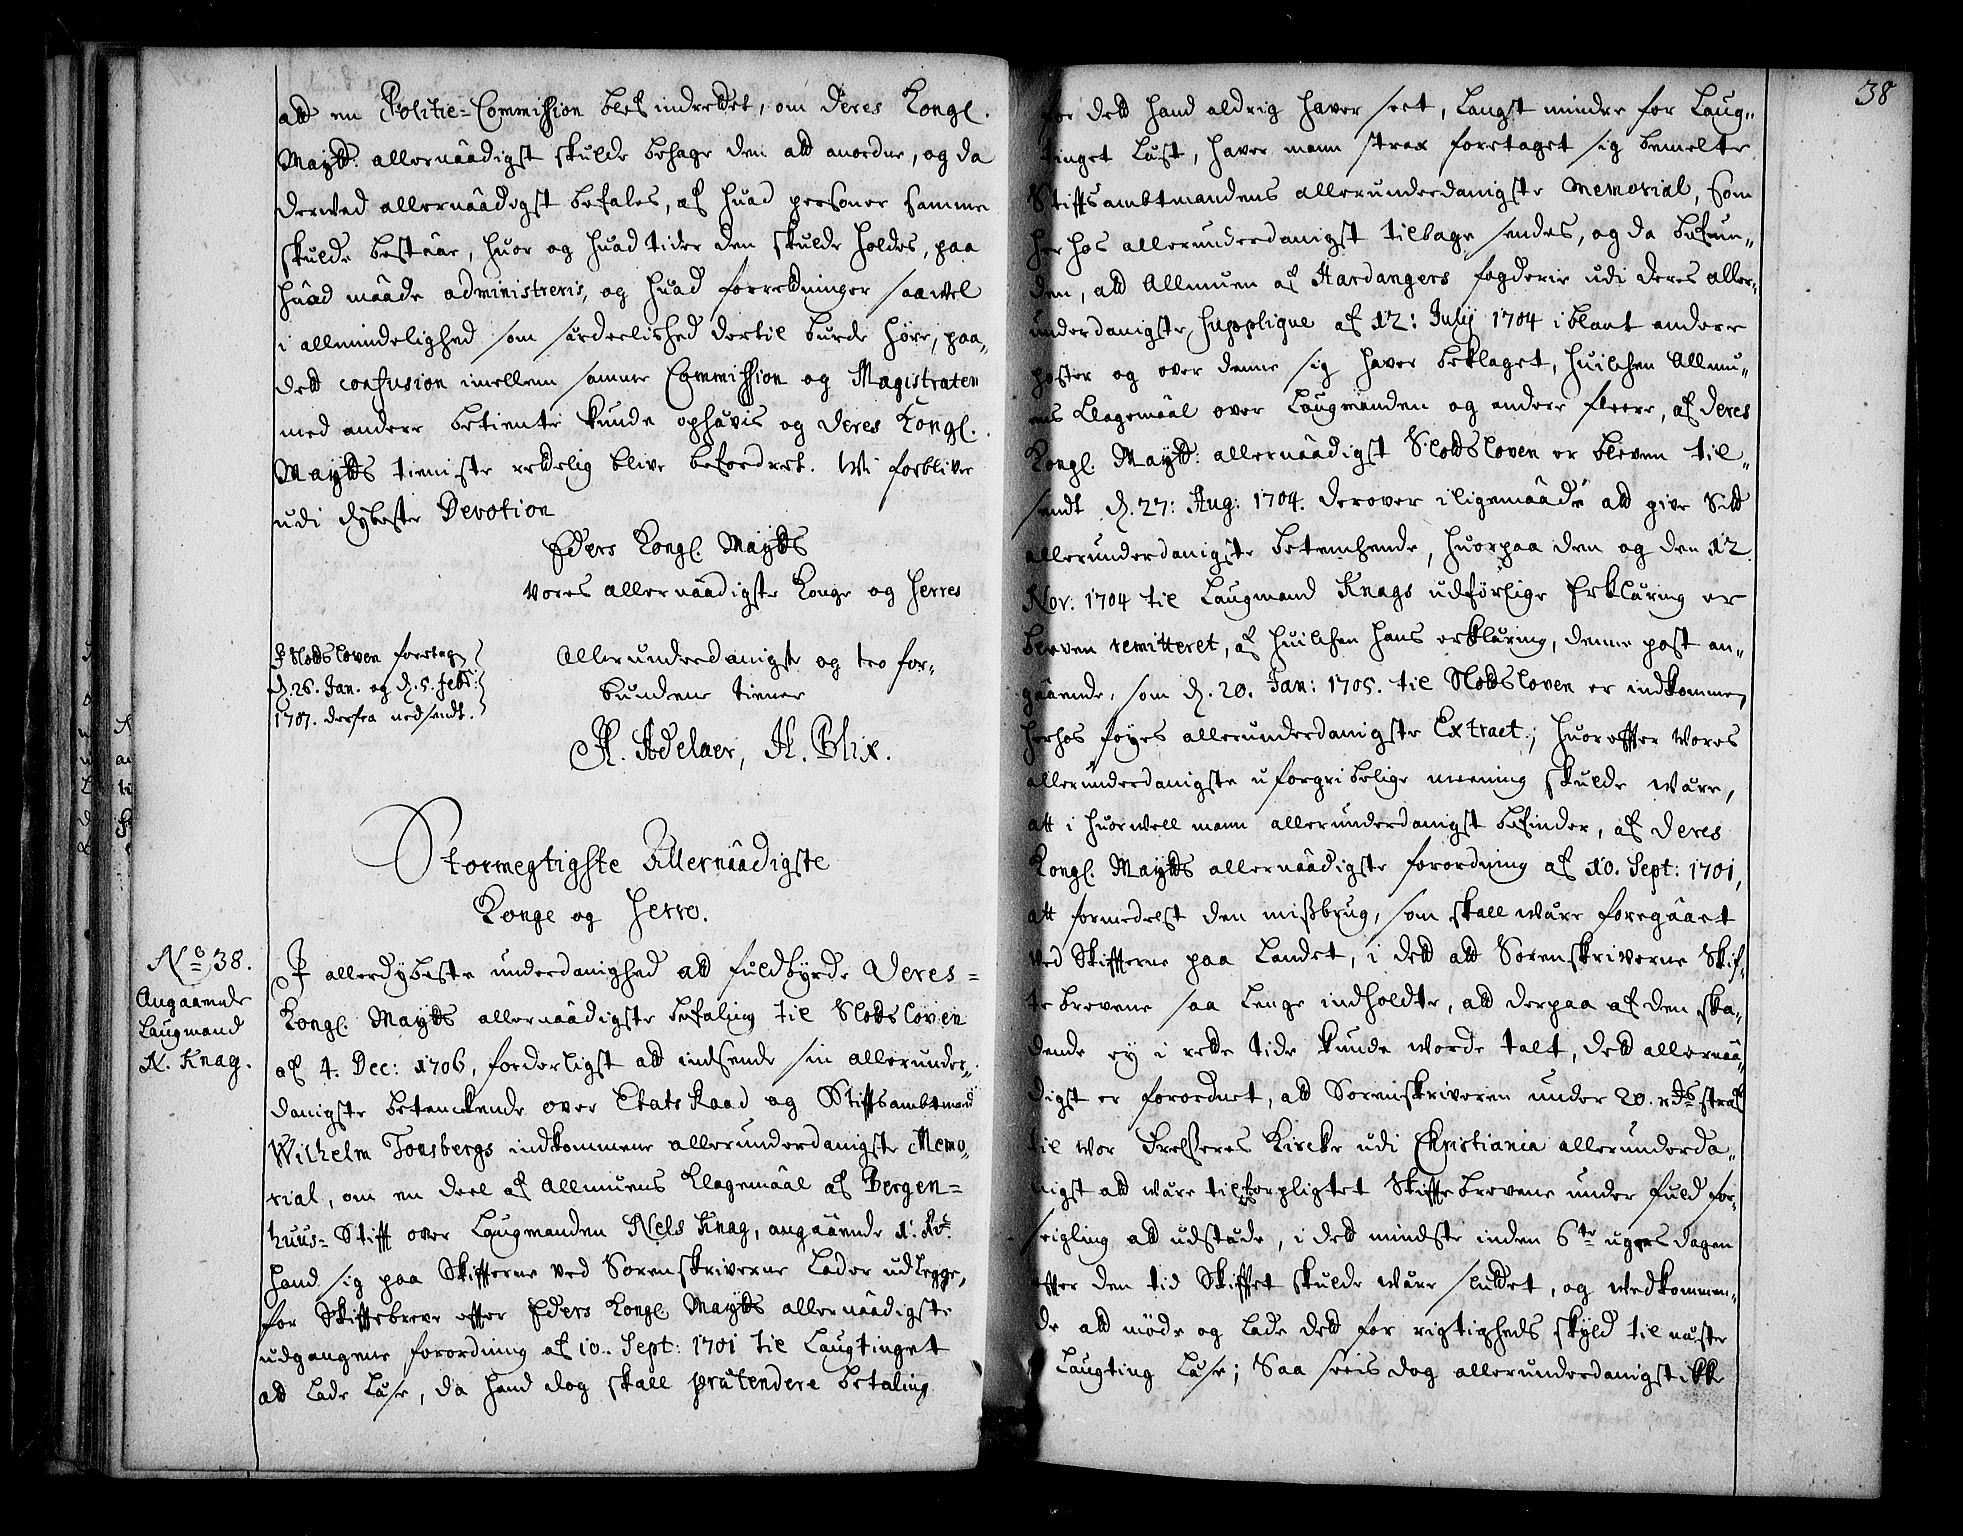 att en Politie-Commission blef indrettet, om Deres Kongl.
Maytt: allernåådigst skulde behage den att anordne, og da
derved allernåådigst befales, af huad personer samme
skulde beståår, huor og huad tider den skulde holdes, paa
huad mååde administreris, og huad forretninger saavel
i allmindelighed som særdeelished dertil burde höre, paa
dett confusion imellem samme Commission og Magistraten
med andere betiente kunde ophævis og Deres Kongl.
Maytts tieniste rettelig blive befordret. Wi forblive
udi dybeste Devotion
Eders Kongl. Maytts
Vores allernåådigste Konge og Herres
I Slottsloven foretagen
d. 26. Jan. og d. 5. Febr:
1707. derfra nedsendt.
Allerunderdanigste og tro for-
bundene tienere
H. Adelaer, H. Blix.
Stormegtigste Allernåådigste
Konge og Herre.
No 38.
Angaaende
Laugmand
N. Knag.
I allerdybeste underdanighed att fuldbyrde Deres
Kongl. Maytts allernåådigste befaling til Slottsloven
af 4. Dec: 1706, forderligst att indsende sin allerunder-
danigste betenckende over Etats Raad og Stiftsambtmand
Wilhelm Tonsbergs indkommene allerunderdanigste Memo-
rial, om en deel af Allmuens Klagemåål af Bergen-
huus-Stift over Laugmanden Nels Knag, angåående 1. Rdr
hand sig paa Skifterne ved Sorenskriverne Lader udlegge,
for Skiftebreve efter Eders Kongl. Maytts allernåådigste
udgangene forordning af 10. Sept: 1701 til Laugtinget
att lade læse, da hand dog skall prætendere betaling
38
for dett hand aldrig haver seet, langst mindre for Laug-
tinget læst, haver mann strax foretaget sig bemelte
Stiftsambtmandens allerunderdanigste Memorial, som
herhos allerunderdanigst tilbage sendes, og da befun-
den, att Allmuen af Hardangers fogderie udi deres aller-
underdanigste Supplique af 12: July 1704 iblant andere
poster og over denne sig haver beklaget, huilchen Allmu-
ens Klagemåål over Laugmanden og andere fleere, af Deres
Kongl. Maytt: allernåådigst Slottsloven er bleven til-
sendt d. 27: Aug: 1704. derover iligemååde att give Sitt
allerunderdanigste betenchende, huorpaa den og den 12
Nov: 1704 til Laugmand Knags udförlige Erklæring er
bleven remitteret, af huilchen hans erklæring, denne post an-
gåående, som d. 20. Jan: 1705. til Slottsloven er indkommen,
herhos föyes allerunderdanigste Extract; huorefter Vores
allerunderdanigste uforgribelige meening skulde være,
att i huorvell mann allerunderdanigst befinder, af Deres
Kongl. Maytts allernåådigste forordning af 10. Sept: 1701,
att formedelst den mißbrug, som skall være foregåået
ved Skifterne paa Landet, i dett att Sorenskriverne Skif-
tebrevene saa lenge indholdte, att derpaa af den ska-
dende ey i rette tide kunde vorde talt, dett allernåå-
digst er forordnet, att Sorenskriveren under 20. rdrs straf
til vor Frelseres Kircke udi Christiania allerunderda-
nigst att være tilforpligtet Skiftebrevene under fuld for-
seigling att udstæde, i dett mindste inden 6te ugers dagen
efter den tid Skiftet skulde være sluttet, og vedkommen-
de att möde og lade dett for rigtigheds skyld til næste
Laugting læse; Saa sees dog allerunderdanigst ikke